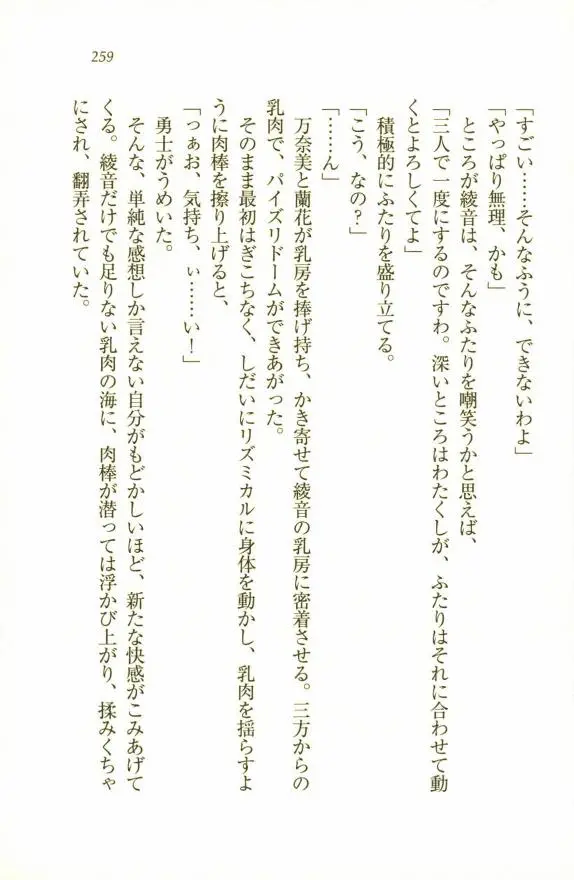 259
「すごい……そんなふうに、できないわよ」
「やっぱり無理、かも」
ところが綾音は、そんなふたりを嘲笑うかと思えば、
「三人で一度にするのですわ。深いところはわたくしが、ふたりはそれに合わせて動
くとよろしくてよ」
積極的にふたりを盛り立てる。
「こう、なの？」
「……ん」
万奈美と蘭花が乳房を捧げ持ち、かき寄せて綾音の乳房に密着させる。三方からの
乳肉で、パイズリドームができあがった。
そのまま最初はぎこちなく、しだいにリズミカルに身体を動かし、乳肉を揺らすよ
うに肉棒を擦り上げると、
「っぁお、気持ち、ぃ……い！」
勇士がうめいた。
そんな、単純な感想しか言えない自分がもどかしいほど、新たな快感がこみあげて
くる。綾音だけでも足りない乳肉の海に、肉棒が潜っては浮かび上がり、揉みくちゃ
にされ、翻弄されていた。